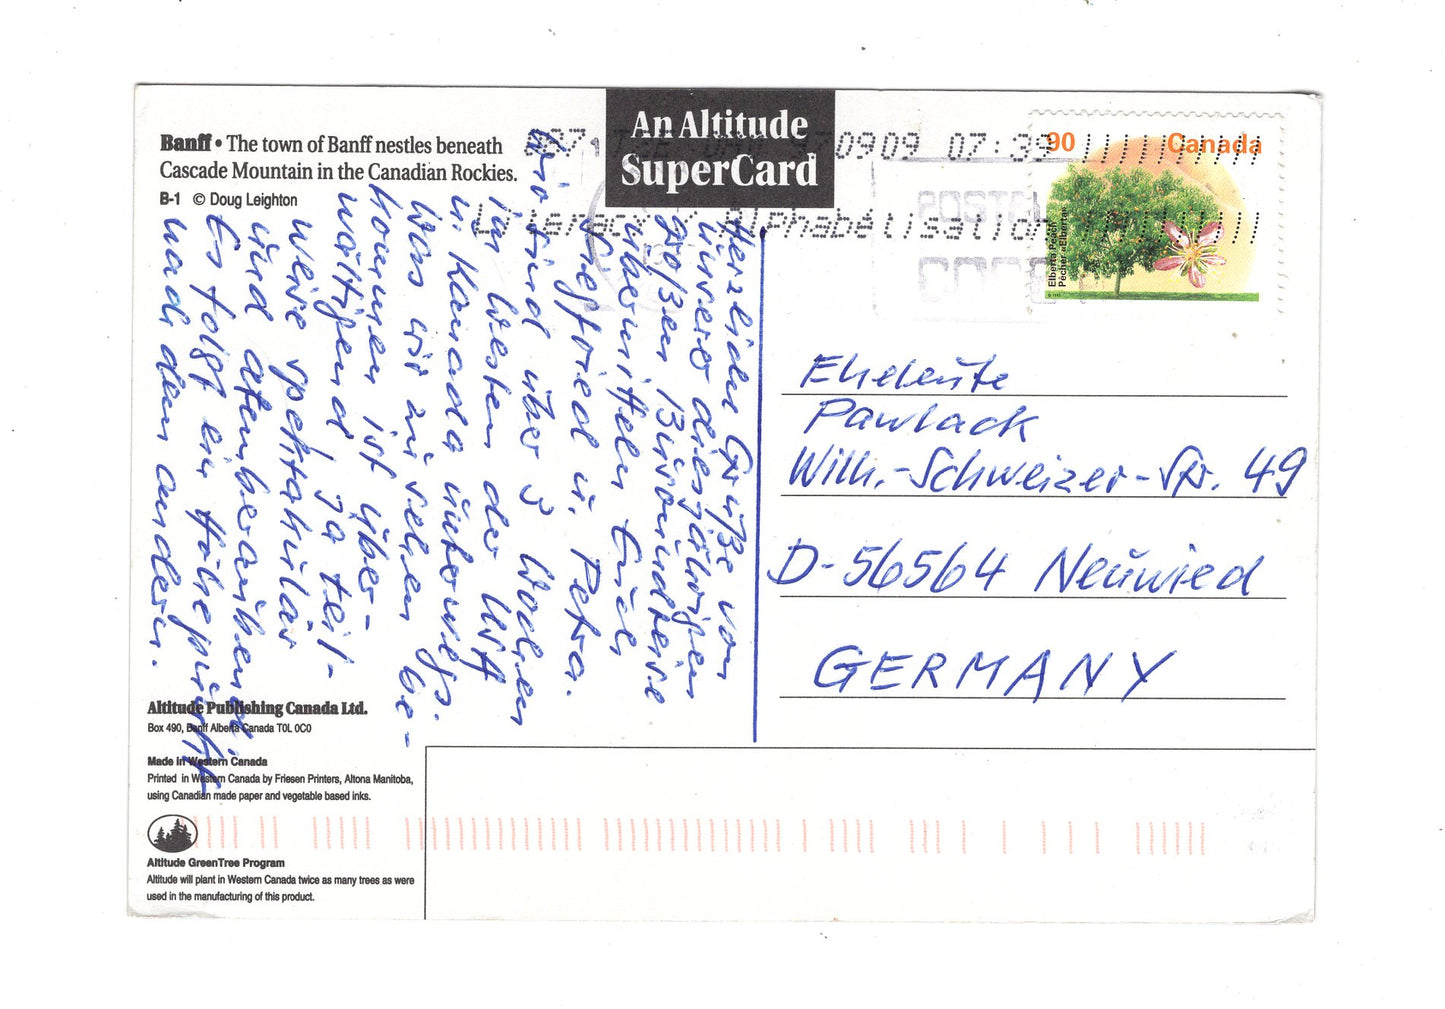 Banff • The town of Banff nestles beneath
Cascade Mountain in the Canadian Rockies.
B-1 © Doug Leighton
An Altitude
SuperCard
0909 07:33
Literacy / Alphabétisation
POSTAL
CODE
90 Canada
Elberta Peach
Pêcher «Elberta»
Herzliche Grüße von
unserer diesjährigen
großen Busrundreise
übermitteln Euch
Siegfried u. Petra.
Wir sind über 3 Wochen
im Westen der USA
u. Kanada unterwegs.
Was wir zu sehen be-
kommen ist über-
wältigend, ja teil-
weise spektakulär
und atemberaubend.
Es folgt ein Höhepunkt
nach dem anderen.
Eheleute
Pawlack
Wilh.-Schweizer-Str. 49
D-56564 Neuwied
GERMANY
Altitude Publishing Canada Ltd.
Box 490, Banff Alberta Canada T0L 0C0
Made in Western Canada
Printed in Western Canada by Friesen Printers, Altona Manitoba,
using Canadian made paper and vegetable based inks.
Altitude GreenTree Program
Altitude will plant in Western Canada twice as many trees as were
used in the manufacturing of this product.